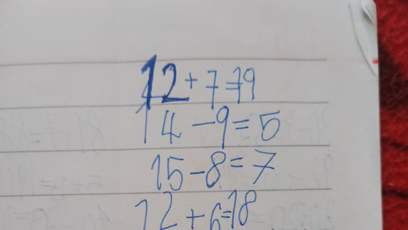 12+7=19
14-9=5
15-8=7
12+6=18